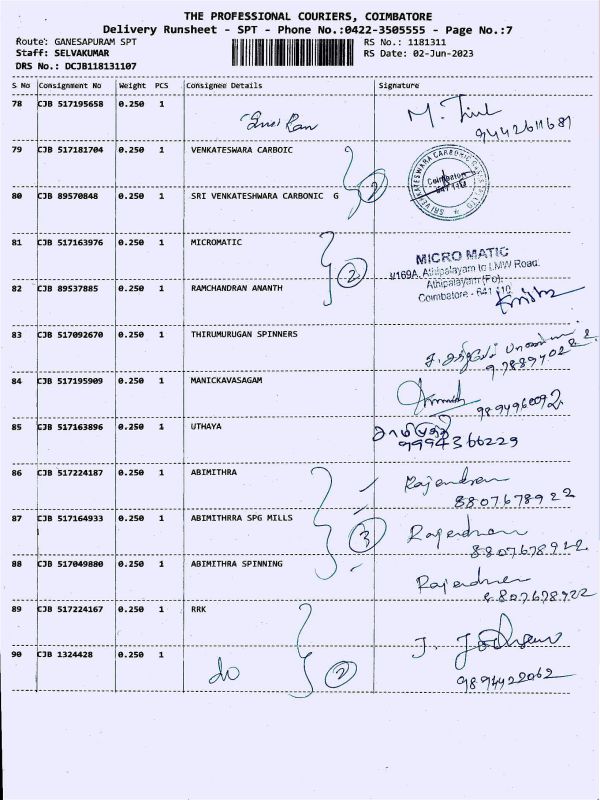 THE PROFESSIONAL COURIERS, COIMBATORE
Delivery Runsheet - SPT - Phone No.:0422-3505555 - Page No.:7
Route: GANESAPURAM SPT
RS No.: 1181311
Staff: SELVAKUMAR
RS Date: 02-Jun-2023
DRS No.: DCJB118131107
S No Consignment No Weight PCS Consignee Details Signature
78 CJB 517195658 0.250 1
9442611681
79 CJB 517181704 0.250 1 VENKATESWARA CARBOIC
2
80 CJB 89570848 0.250 1 SRI VENKATESHWARA CARBONIC G
81 CJB 517163976 0.250 1 MICROMATIC
2
MICRO MATIC
Athipalayam to LMW Road.
Athipalayam (Po),
Coimbatore - 641 110
82 CJB 89537885 0.250 1 RAMCHANDRAN ANANTH
83 CJB 517092670 0.250 1 THIRUMURUGAN SPINNERS
84 CJB 517195909 0.250 1 MANICKAVASAGAM
9894960092
85 CJB 517163896 0.250 1 UTHAYA
9994366229
86 CJB 517224187 0.250 1 ABIMITHRA
Rajendran
8807678922
87 CJB 517164933 0.250 1 ABIMITHRRA SPG MILLS
3
Rajendran
8807678922
88 CJB 517049880 0.250 1 ABIMITHRA SPINNING
Rajendran
8807678922
89 CJB 517224167 0.250 1 RRK
90 CJB 1324428 0.250 1 do
2
9894422062